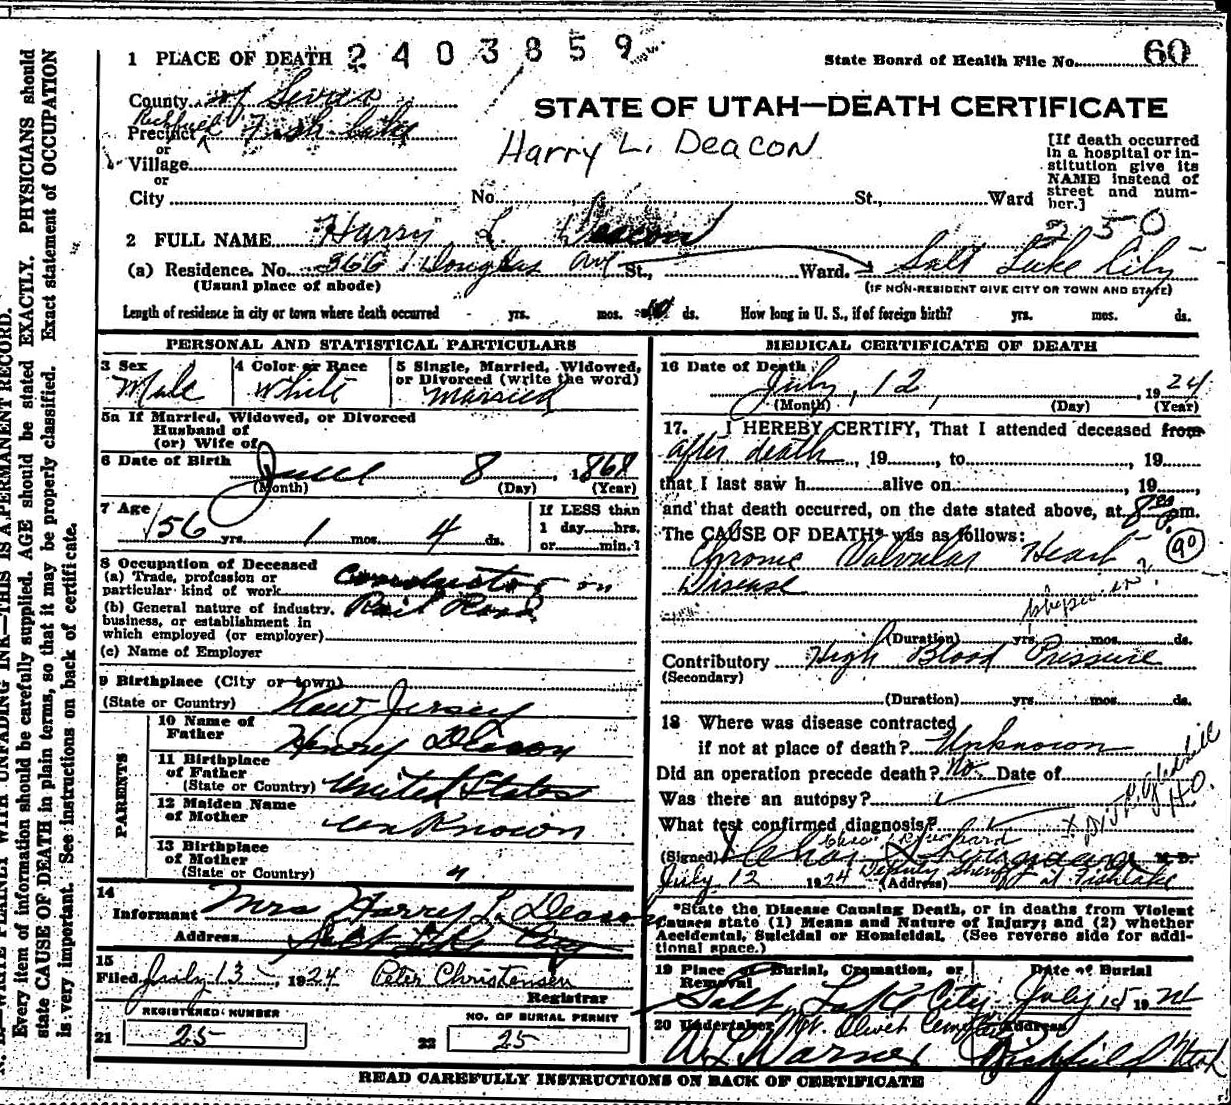 1 PLACE OF DEATH 2403859
State Board of Health File No. 60
County of Sevier
STATE OF UTAH—DEATH CERTIFICATE
Richfield
Precinct Fish Lake
or
Village
or
City No. St., Ward
Harry L. Deacon
[If death occurred
in a hospital or in-
stitution give its
NAME instead of
street and num-
ber.]
250
2 FULL NAME Harry L Deacon
(a) Residence. No. 366 Douglas Ave St., Ward. Salt Lake City
(Usual place of abode) (IF NON-RESIDENT GIVE CITY OR TOWN AND STATE)
Length of residence in city or town where death occurred - yrs. mos. ds. How long in U. S., if of foreign birth? yrs. mos. ds.
PERSONAL AND STATISTICAL PARTICULARS
3 Sex
Male
4 Color or Race
White
5 Single, Married, Widowed,
or Divorced (write the word)
Married
5a If Married, Widowed, or Divorced
Husband of
(or) Wife of
6 Date of Birth June 8, 1868
(Month) (Day) (Year)
7 Age
56 yrs. 1 mos. 4 ds.
If LESS than
1 day hrs.
or min.?
8 Occupation of Deceased
(a) Trade, profession or
particular kind of work Conductor on
(b) General nature of industry, Rail Road
business, or establishment in
which employed (or employer)
(c) Name of Employer
9 Birthplace (City or town)
(State or Country) New Jersey
PARENTS
10 Name of
Father Henry Deacon
11 Birthplace
of Father
(State or Country) United States
12 Maiden Name
of Mother unknown
13 Birthplace
of Mother
(State or Country) "
14
Informant Mrs Harry L. Deacon
Address Salt Lake City
15
Filed July 13, 1924 Peter Christensen
Registrar
REGISTERED NUMBER
21 25
NO. OF BURIAL PERMIT
22 25
MEDICAL CERTIFICATE OF DEATH
16 Date of Death
July, 12, 1924
(Month) (Day) (Year)
17. I HEREBY CERTIFY, That I attended deceased from
after death, 19, to, 19
that I last saw h alive on, 19,
and that death occurred, on the date stated above, at 8 P. m.
The CAUSE OF DEATH* was as follows:
Chronic Valvular Heart
Disease
90
(Duration) yrs. mos. ds.
Contributory High Blood Pressure
(Secondary)
(Duration) yrs. mos. ds.
18 Where was disease contracted
if not at place of death? Unknown
Did an operation precede death? No. Date of
Was there an autopsy?
What test confirmed diagnosis?
(Signed) M. D.
July 12 1924 (Address) Deputy Sheriff at Fishlake
*State the Disease Causing Death, or in deaths from Violent
Causes state (1) Means and Nature of Injury; and (2) whether
Accidental, Suicidal or Homicidal. (See reverse side for addi-
tional space.)
19 Place of Burial, Cremation, or Date of Burial
Removal
Salt Lake City July 15 1924
Mt. Olivet Cemetery
20 Undertaker Address
W L Warner Richfield Utah
READ CAREFULLY INSTRUCTIONS ON BACK OF CERTIFICATE
WRITE PLAINLY WITH UNFADING INK—THIS IS A PERMANENT RECORD.
Every item of information should be carefully supplied. AGE should be stated EXACTLY. PHYSICIANS should
state CAUSE OF DEATH in plain terms, so that it may be properly classified. Exact statement of OCCUPATION
is very important. See instructions on back of certificate.